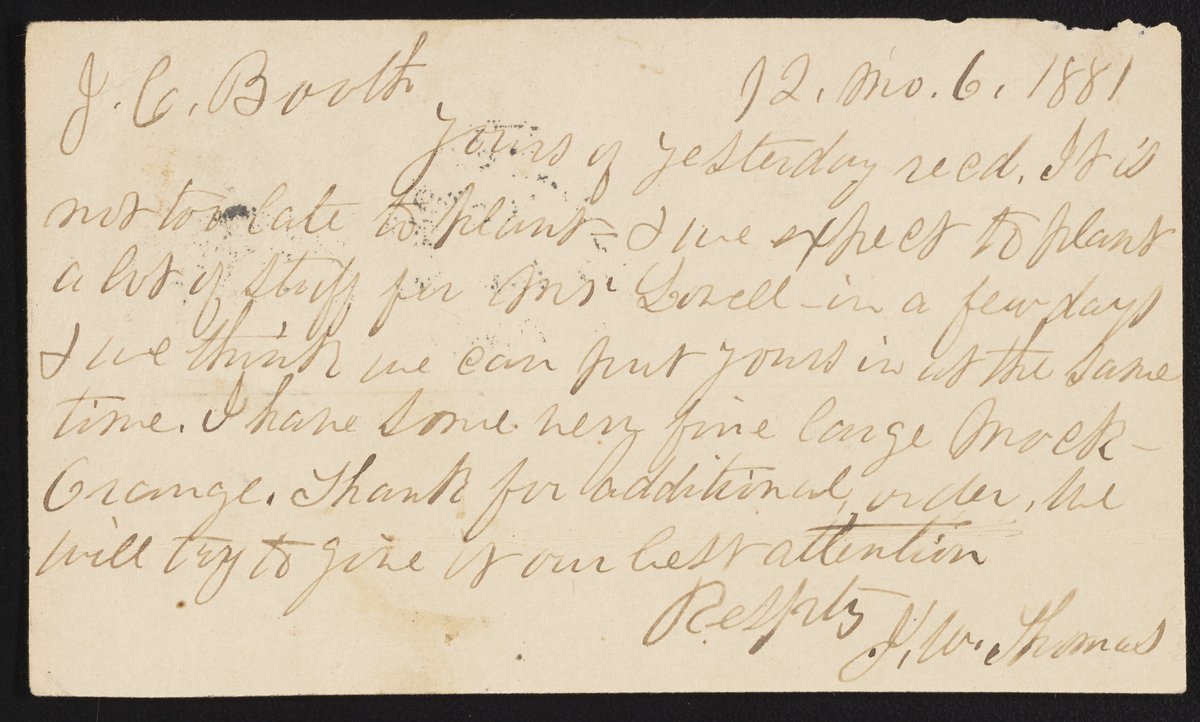 J. C. Booth 12. mo. 6. 1881
Yours of yesterday recd. It is
not too late to plant - & we expect to plant
a lot of stuff for Mr Lovell - in a few days
& we think we can put yours in at the same
time. I have some very fine large Mock-
Orange. Thank for additional order, we
will try to give it our best attention
Respty
J. W. Thomas